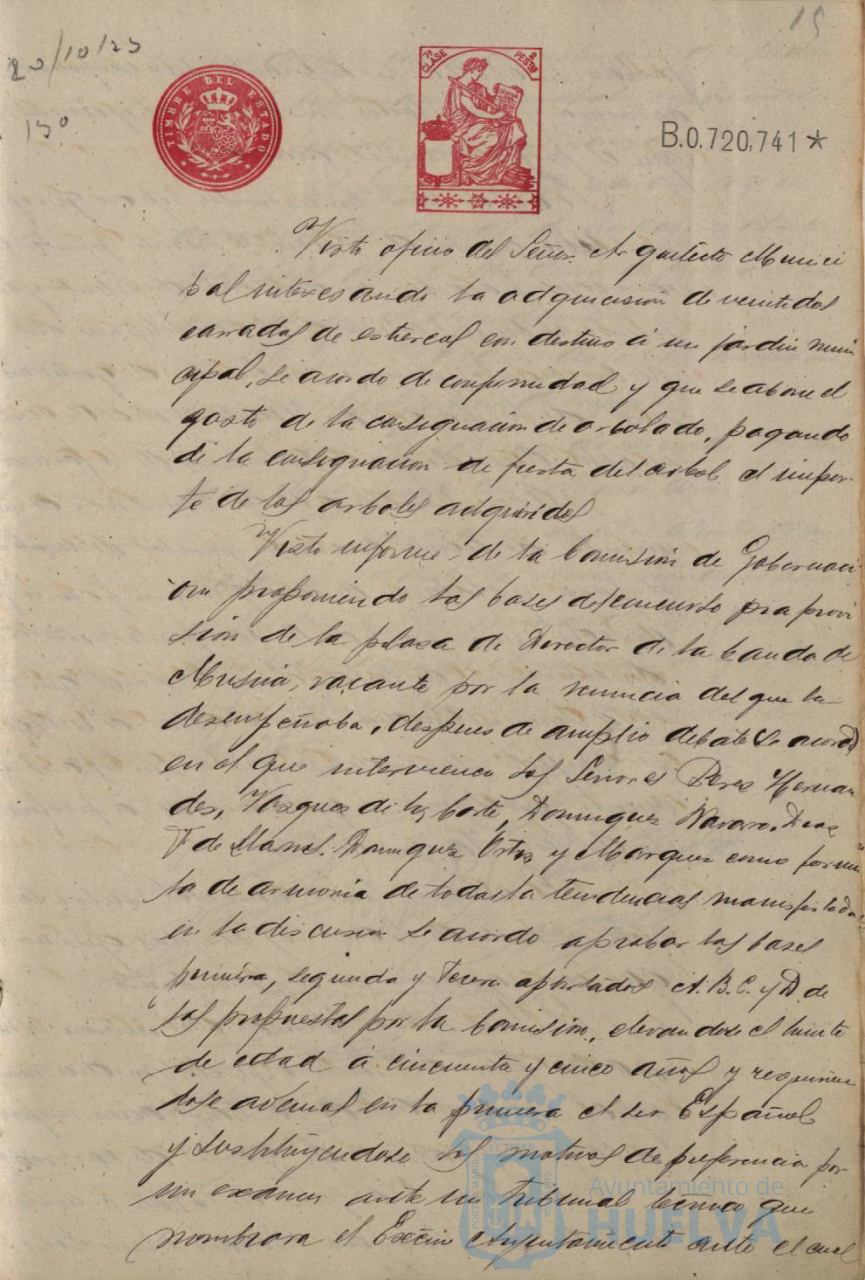 15
20/10/23
15º
TIMBRE DEL ESTADO
7ª CLASE 2 PESTAS
B.0,720,741*
Visto oficio del Señor Arquitecto Munici
pal interesando la adquicisión de veintidos
carradas de estiercol con destino á un jardin muni
cipal, se acordo de conformidad y que se abone el
gasto de la consignacion de arbolado, pagando
de la consignacion de fiesta del arbol el impor-
te de los arboles adquiridos
Visto informe de la Comisión de Gobernaci
on proponiendo las bases del concurso pra provi
sión de la plasa de Director de la banda de
Musica, vacante por la renuncia del que la
desempeñaba, despues de amplio debate se acordó
en el que intervienen los Señores Peres Hernan
des, Vasques de la Corte, Dominguez Navarro,
Dominguez Ortiz y Marquez como formu
la de armonia de todas la tendencias manifestadas
en la discusion se acordo aprobar las bases
primera, segunda y tercera apartados A. B. C. y D. de
las propuestas por la Comisión, elevandose el limite
de edad a cincuenta y cinco años y requirien
dose ademas en la primera el ser Español
y sustituyendose los motivos de preferencia por
un examen ante un Tribunal tecnico que
nombrara el Excmo Ayuntamiento ante el cual
Ayuntamiento de
HUELVA